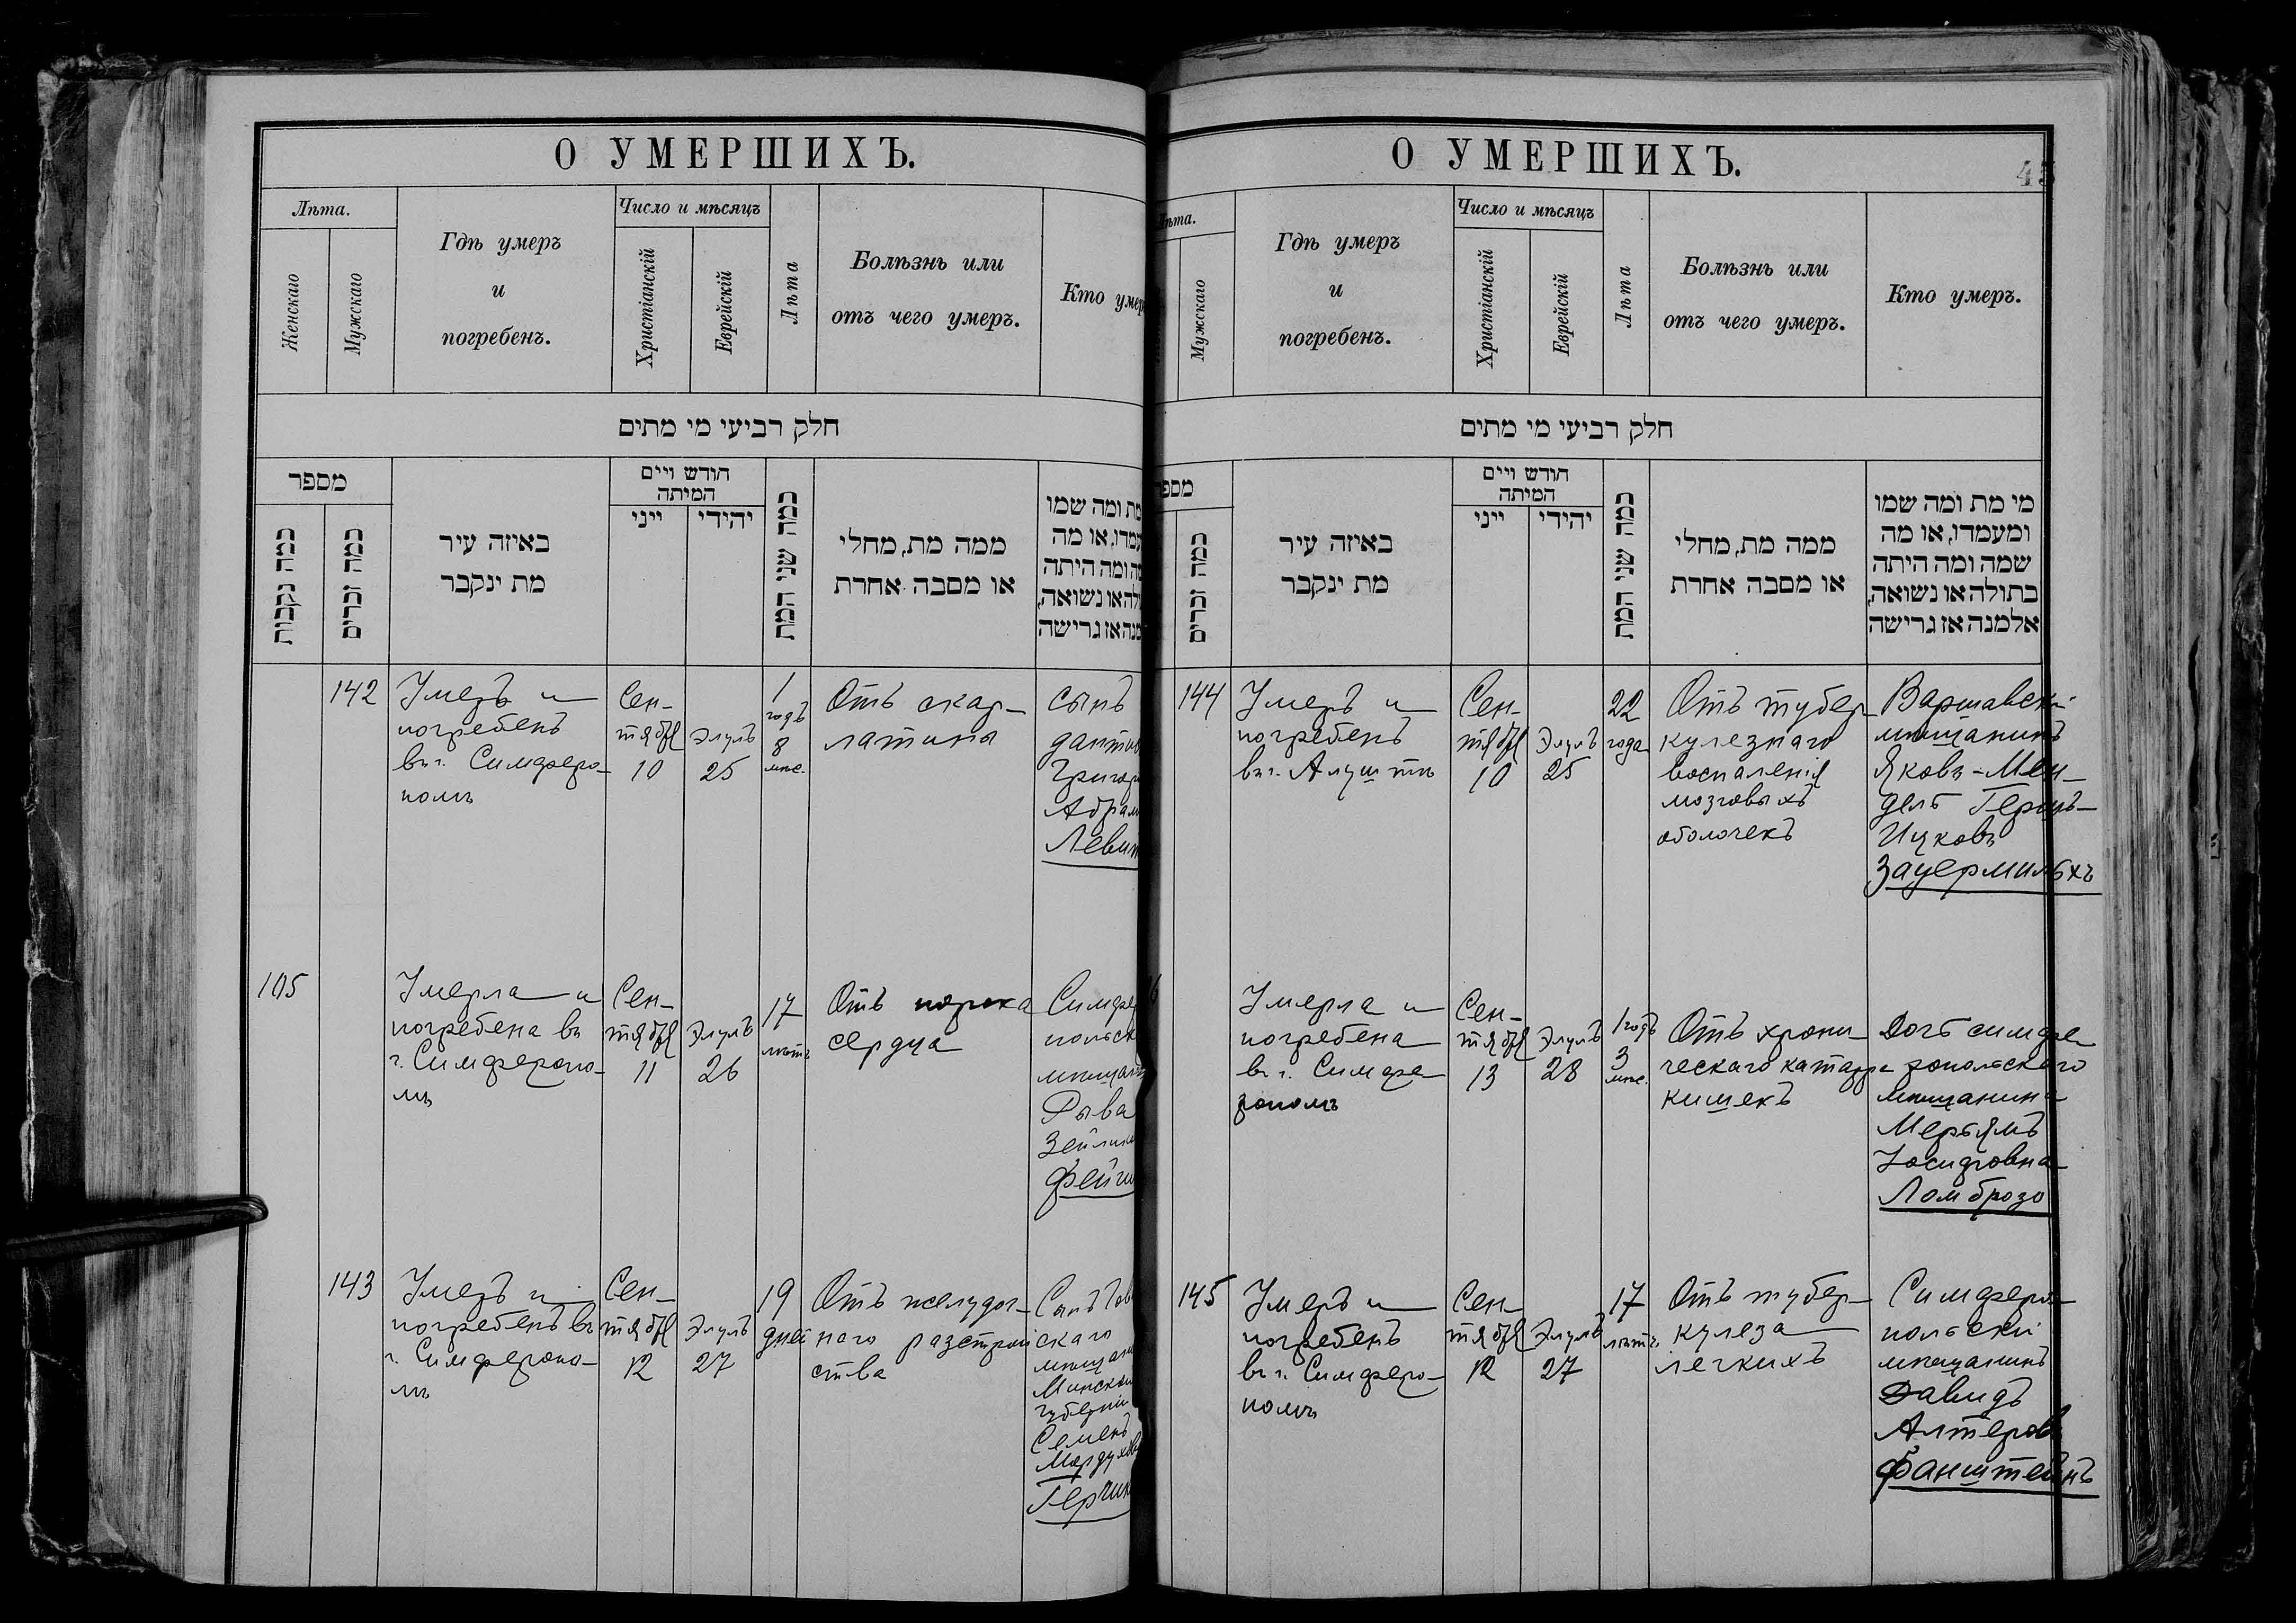 О УМЕРШИХЪ.
Лѣта.
Женскаго
Мужскаго
Гдѣ умеръ
и
погребенъ.
Число и мѣсяцъ
Христіанскій
Еврейскій
Лѣта
Болѣзнь или
отъ чего умеръ.
Кто умер
חלק רביעי מי מתים
מספר
כמה נקבות
כמה זכרים
באיזה עיר
מת ינקבר
חודש ויים
המיתה
ייני
יהידי
כמה שני המת
ממה מת, מחלי
או מסבה אחרת
מת ומה שמו
עמדו, או מה
מה ומה היתה
ולה או נשואה,
מנה אז גרישה
142
Умеръ и
погребенъ
въ г. Симферо-
полѣ
Сен-
тября
10
Элулъ
25
1
годъ
8
мѣс.
Отъ скар-
латины
сынъ
Григор
Абрам
Левин
105
Умерла и
погребена въ
г. Симферопо-
лѣ
Сен-
тября
11
Элулъ
26
17
лѣтъ
Отъ порока
сердца
Симфе
польск
мѣщан
Рыва
Зелик
Фейги
143
Умеръ и
погребенъ въ
г. Симферопо-
лѣ
Сен-
тября
12
Элулъ
27
19
дней
Отъ желудоч-
наго разстрой
ства
Сынъ
скаго
мѣщан
Минской
губерніи
Семенъ
Мордухов
Герчик
О УМЕРШИХЪ.
45
ѣта.
Мужскаго
Гдѣ умеръ
и
погребенъ.
Число и мѣсяцъ
Христіанскій
Еврейскій
Лѣта
Болѣзнь или
отъ чего умеръ.
Кто умеръ.
חלק רביעי מי מתים
מספ
כמה זכרים
באיזה עיר
מת ינקבר
חודש ויים
המיתה
ייני
יהידי
כמה שני המת
ממה מת, מחלי
או מסבה אחרת
מי מת ומה שמו
ומעמדו, או מה
שמה ומה היתה
בתולה או נשואה,
אלמנה אז גרישה
144
Умеръ и
погребенъ
въ г. Алуштѣ
Сен-
тября
10
Элулъ
25
22
года
Отъ тубер-
кулезнаго
воспаленія
мозговыхъ
оболочекъ
Варшавскій
мѣщанинъ
Яковъ-Мен-
дель Герцъ-
Ицковъ
Зауермильхъ
6
Умерла и
погребена
въ г. Симфе-
рополѣ
Сен-
тября
13
Элулъ
28
1 годъ
3
мѣс.
Отъ хрони-
ческаго катарра
кишекъ
Дочь симфе-
ропольскаго
мѣщанина
Мерьямъ
Іосифовна
Ломброзо
145
Умеръ и
погребенъ
въ г. Симферо-
полѣ
Сен-
тября
12
Элулъ
27
17
лѣтъ
Отъ тубер-
кулеза
легкихъ
Симферо-
польскій
мѣщанинъ
Давидъ
Алтеровъ
Фанштейнъ